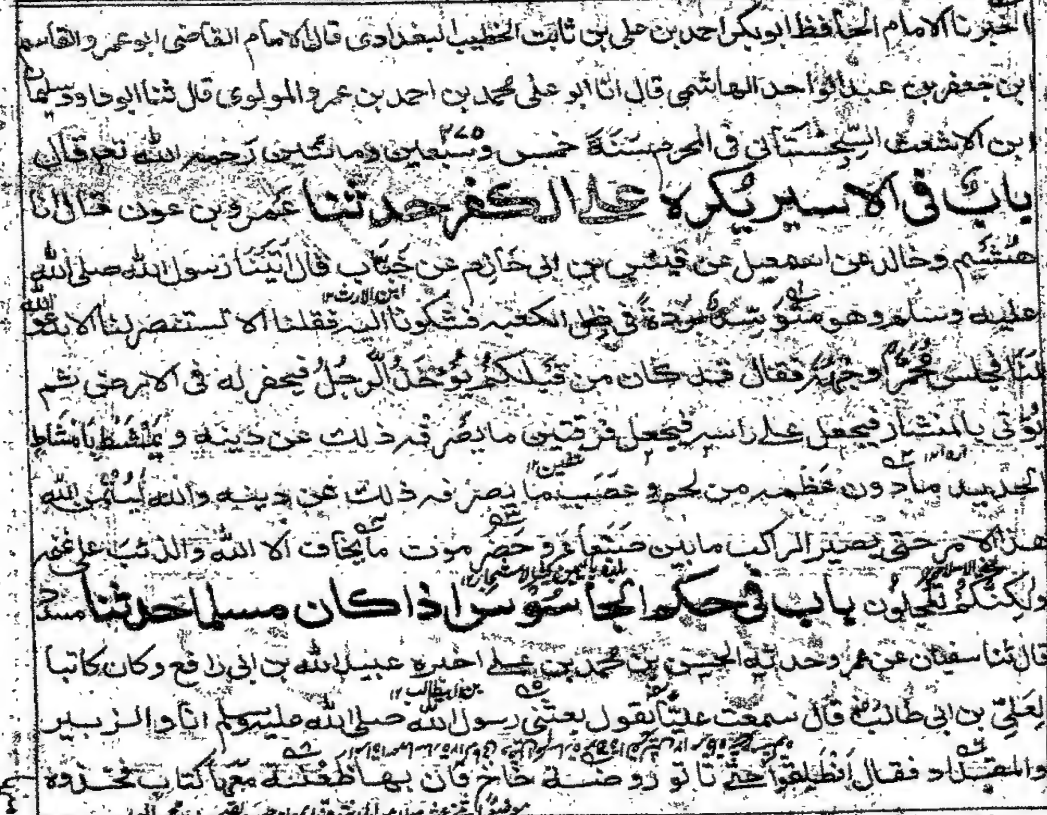 اخبرنا الامام الحافظ ابو بكر احمد بن علي بن ثابت الخطيب البغدادي قال الامام القاضي ابو عمرو القاسم
ابن جعفر بن عبد الواحد الهاشمي قال انا ابو علي محمد بن احمد بن عمرو المولوي قال ثنا ابو داود سليمان
ابن الاشعث السِّجِسْتَانی فی المحرم سَنَةَ خمس وسَبْعين ومائتين رَحِمَه الله تعم قال
٢٧٥
بابٌ فی الاسیر یُکرہ علے الکفر حدثنا عَمرو بن عون قال انا
هُشَيْم وخالد عن اسمعيل عن قيس بن ابی حَازِم عن خَبَّاب قال اَتَيْنَا رَسول الله صلى الله
ابن الارت ١٢
عليه وسلم وهو متوسِّدٌ بُردةً فی ظل الكعبه فشكونا اليه فقلنا الا تستنصر لنا الا تدعو الله
لنا فجلس مُحْمَرًّا وَجْهُهٗ فقال قد كان من قبلكم يُؤْخَذُ الرَّجُلُ فيحفر له فی الارض ثم
يُؤتى بالمنشار فيجعل علے راسه فيجعل فرقتين ما يصرفه ذلك عن دينه و يُمْشَطُ بامشاط
الحديد ما دون عَظْمه من لحم و عصب ما يصرفه ذلك عن دينه والله لَيُتِمَّنَّ الله
هذا الامر حتى يصير الراكب ما بين صَنْعَاءَ و حَضْرَ موت ما يخاف الا الله والذئبَ على غنمه
ولكنَّكُمْ تعجلون باب فی حکم الجاسُوس اذا کان مسلما حدثنا مسدد
قال ثنا سفيان عن عمرو حدثه الحسن بن محمد بن علے اخبره عبيد الله بن ابی رافع وكان كاتبا
لِعَلِیِّ بن ابی طالب قال سمعت عليًّا يقول بعثنی رسول الله صلى الله عليه وسلم انا والزبير
بن ابیطالب ١٢
والمقداد فقال انطلقوا حتى تاتو روضة خاخ فان بها ظعينة معها كتاب فخذوه